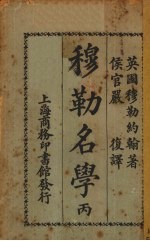 英國穆勒約翰著
侯官嚴復譯
穆勒名學丙
上海商務印書館發行